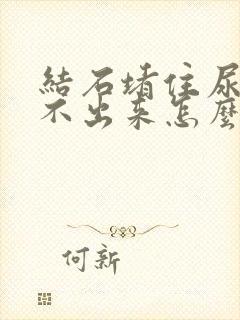 結石堵住尿
不出来怎麼
何新